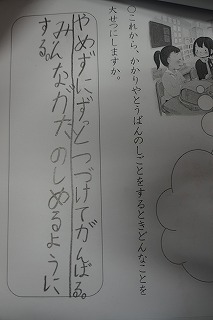 ○これから、かかりやとうばんのしごとをするときどんなことを
大せつにしますか。
やめずにずっとつづけてがんばる。
みんながたのしめるように、
する。